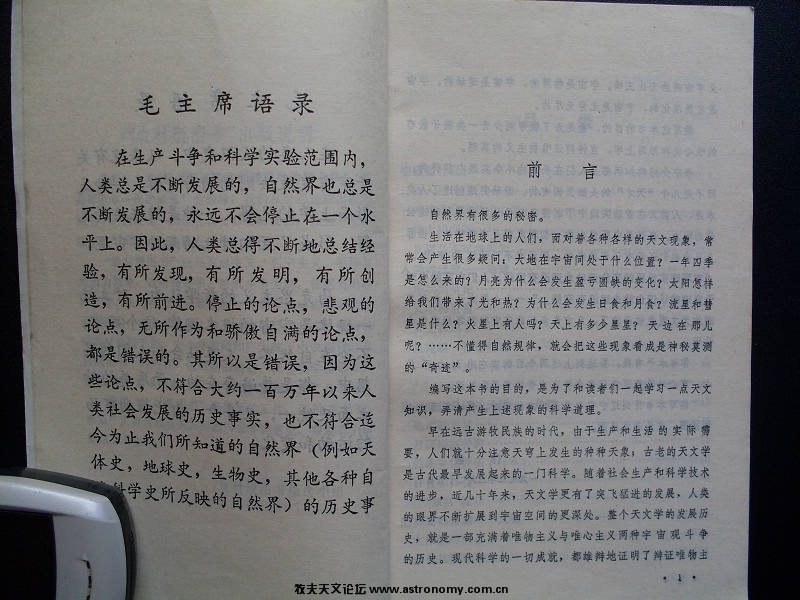 毛主席语录
在生产斗争和科学实验范围内，
人类总是不断发展的，自然界也总是
不断发展的，永远不会停止在一个水
平上。因此，人类总得不断地总结经
验，有所发现，有所发明，有所创
造，有所前进。停止的论点，悲观的
论点，无所作为和骄傲自满的论点，
都是错误的。其所以是错误，因为这
些论点，不符合大约一百万年以来人
类社会发展的历史事实，也不符合迄
今为止我们所知道的自然界（例如天
体史，地球史，生物史，其他各种自
科学史所反映的自然界）的历史事
前言
自然界有很多的秘密。
生活在地球上的人们，面对着各种各样的天文现象，常
常会产生很多疑问：大地在宇宙间处于什么位置？一年四季
是怎么来的？月亮为什么会发生盈亏圆缺的变化？太阳怎样
给我们带来了光和热？为什么会发生日食和月食？流星和彗
星是什么？火星上有人吗？天上有多少星星？天边在那儿
呢？……不懂得自然规律，就会把这些现象看成是神秘莫测
的“奇迹”。
编写这本书的目的，是为了和读者们一起学习一点天文
知识，弄清产生上述现象的科学道理。
早在远古游牧民族的时代，由于生产和生活的实际需
要，人们就十分注意天穹上发生的种种天象；古老的天文学
是古代最早发展起来的一门科学。随着社会生产和科学技术
的进步，近几十年来，天文学更有了突飞猛进的发展，人类
的眼界不断扩展到宇宙空间的更深处。整个天文学的发展历
史，就是一部充满着唯物主义与唯心主义两种宇宙观斗争
的历史。现代科学的一切成就，都雄辩地证明了辩证唯物主
·1·
牧夫天文论坛 www.astronomy.com.cn